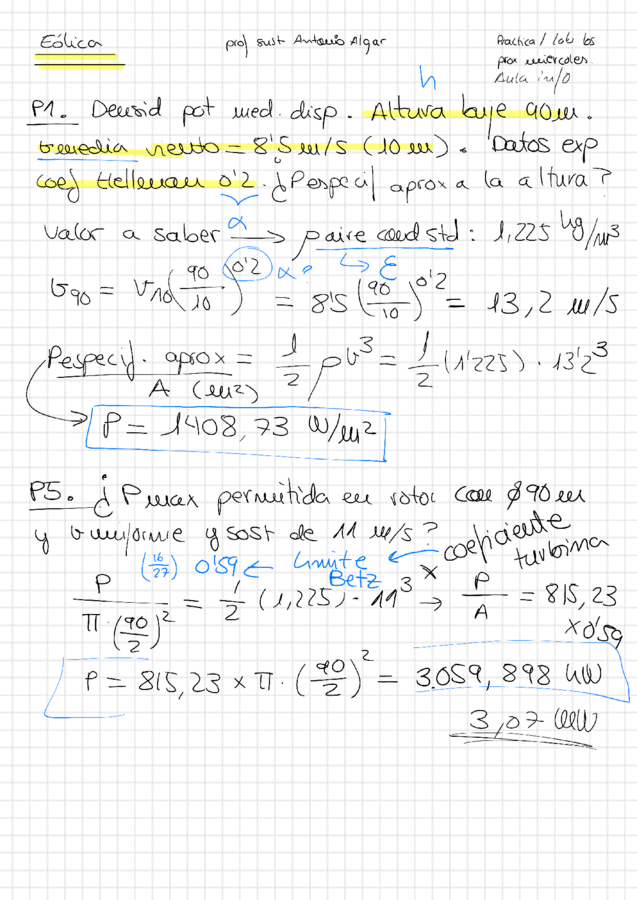 Eólica
prof sust Antonio Algar
Practica / lab los
prox miercoles.
Aula info
h
P1. Densid pot med. disp. Altura buje 90m.
vmedia viento = 8'5 m/s (10 m). Datos exp
coef Hellman 0'2. ¿Pespecif aprox a la altura?
α
Valor a saber → ρaire cond std: 1,225 kg/m³
↳ ε
v90 = V10 (90/10)^0'2 α? = 8'5 (90/10)^0'2 = 13,2 m/s
Pespecif. aprox / A (m²) = 1/2 ρv³ = 1/2 (1'225) · 13'2³
→ P = 1408,73 W/m²
P5. ¿Pmax permitida en rotor con ø90m
y v uniforme y sost de 11 m/s?
coeficiente
turbina
(16/27) 0'59 ← Limite Betz ←
P / π·(90/2)² = 1/2 (1,225) · 11³ x → P/A = 815,23
x0'59
P = 815,23 x π · (90/2)² = 3.059,898 kW
3,07 MW